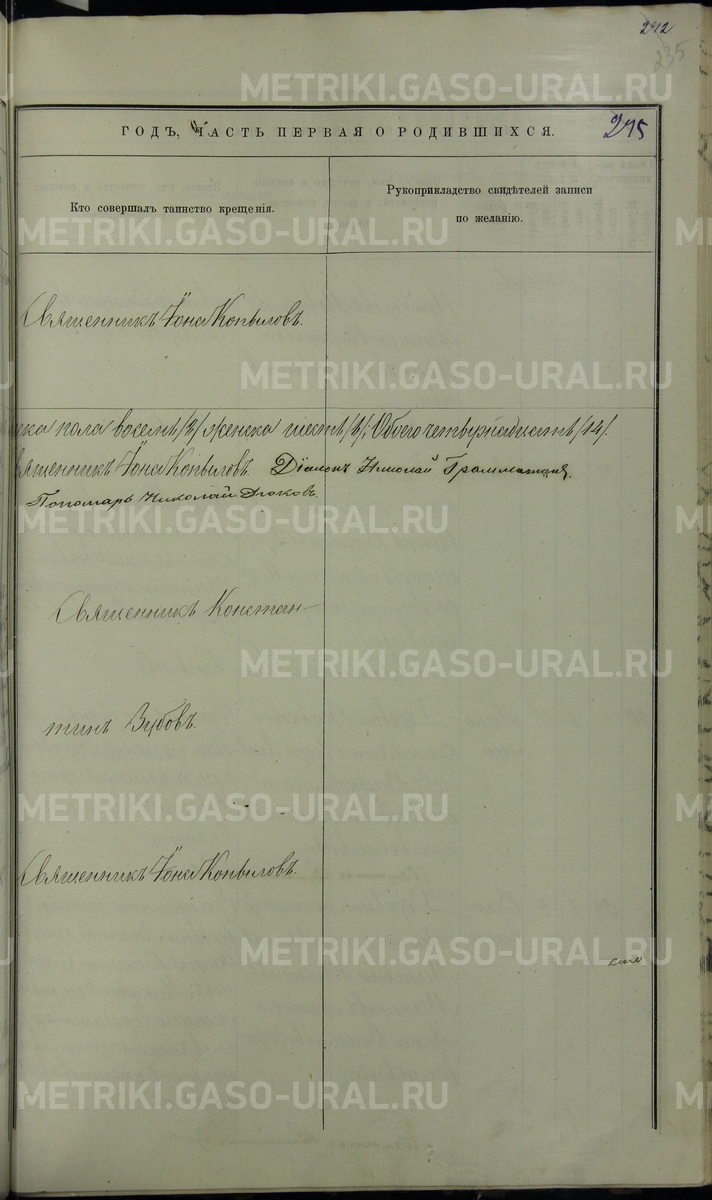 242
235
ГОДЪ, ЧАСТЬ ПЕРВАЯ О РОДИВШИХСЯ.
275
Кто совершалъ таинство крещенія.
Рукоприкладство свидѣтелей записи
по желанію.
Священникъ Іона Копыловъ.
ска пола восемь /8/ женска шесть /6/, Обоего четырнадцать /14/.
Священникъ Іона Копыловъ. Діаконъ Николай
Пономарь Николай Дюковъ.
Священникъ Констан-
тинъ Зубовъ.
Священникъ Іона Копыловъ.
METRIKI.GASO-URAL.RU
METRIKI.GASO-URAL.RU
METRIKI.GASO-URAL.RU
METRIKI.GASO-URAL.RU
METRIKI.GASO-URAL.RU
METRIKI.GASO-URAL.RU
METRIKI.GASO-URAL.RU
METRIKI.GASO-URAL.RU